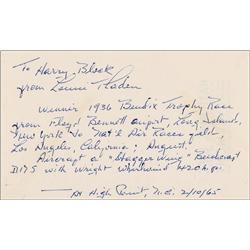 To Harry Block
from Louise Thaden
Winner 1936 Bendix Trophy Race
from Floyd Bennett airport, Long Island,
New York to Nat'l Air Races field,
Los Angeles, California; August.
Aircraft a "Stagger Wing" Beechcraft
D17S with Wright Whirlwind 420 h.p.
At High Point, N.C. 2/10/65